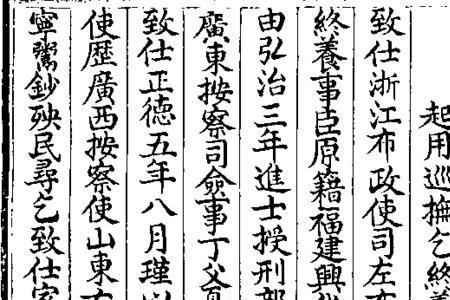 起用巡撫乞終養
致仕浙江布政使司左布
終養事臣原籍福建興
由弘治三年進士授刑部
廣東按察司僉事丁父
致仕正德五年八月瑾
使歷廣西按察使山東
寧鬻鈔殃民尋乞致仕家